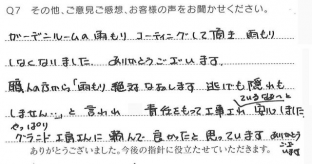 Q7 その他、ご意見ご感想、お客様の声をお聞かせください。
ガーデンルームの雨もり コーティングして頂き 雨もり
しなくなりました。ありがとうございます。
職人の方から「雨もり 絶対なおします 逃げも隠れも
しません…」と言われ 責任をもって工事され 安心しました
ているなあ〜と
やっぱり
グランド工房さんに頼んで良かったと思っています ありがとう
ございます
ありがとうございました。今後の指針に役立たせていただきます。